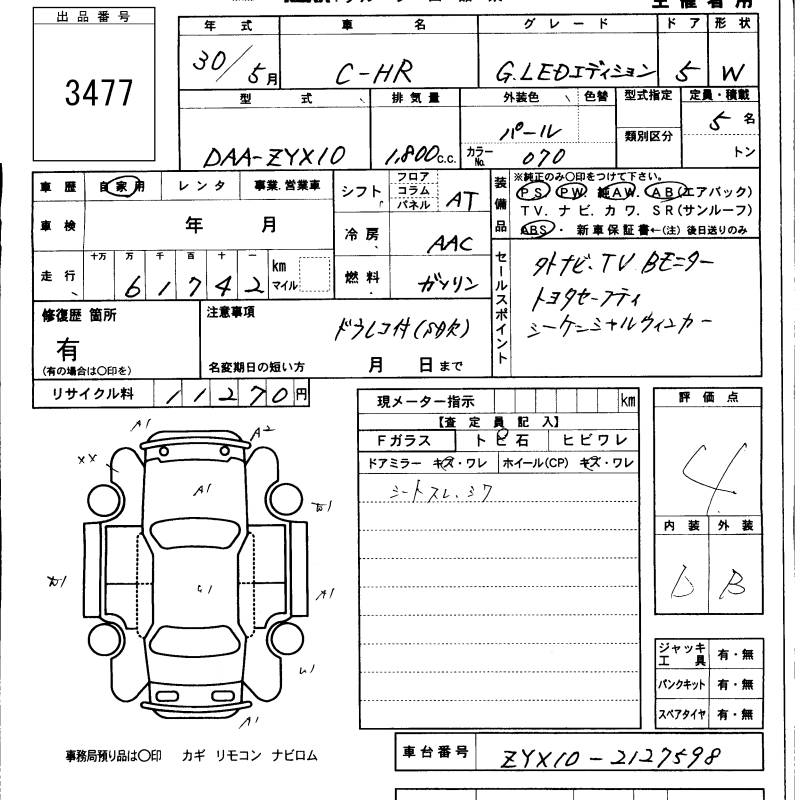 主催者用
出品番号
3477
年式 車名 グレード ドア 形状
30/5月 C-HR G.LEDエディション 5 W
型式 排気量 外装色 色替 型式指定 定員・積載
DAA-ZYX10 1,800c.c. パール 類別区分 5名
カラーNo. 070 トン
車歴 自家用 レンタ 事業.営業車
シフト フロア コラム パネル AT
装備品 ※純正のみ〇印をつけて下さい。
PS PW 純AW. AB(エアバック)
TV.ナビ.カワ.SR(サンルーフ)
ABS・新車保証書←(注)後日送りのみ
車検 年 月
冷房 AAC
走行 十万 万 千 百 十 一 km マイル
61742
燃料 ガソリン
セールスポイント
外ナビ.TV Bモニター
トヨタセーフティ
シーケンシャルウィンカー
修復歴 箇所
有
(有の場合は〇印を)
注意事項
ドラレコ付(SD欠)
名変期日の短い方 月 日まで
リサイクル料 11270円
現メーター指示 km
【査定員記入】
Fガラス トビ石 ヒビワレ
ドアミラー キズ・ワレ ホイール(CP) キズ・ワレ
シートスレ.シワ
評価点
4
内装 外装
D B
A1
A2
XX
A1
A1
A1
ジャッキ工具 有・無
パンクキット 有・無
スペアタイヤ 有・無
事務局預り品は〇印 カギ リモコン ナビロム
車台番号 ZYX10-2127598